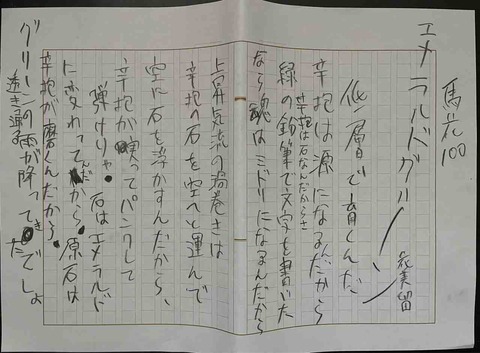 馬光100
エメラルドグリーン
恵美留
低層で育くんだ
辛抱は源になるんだから
辛抱は石なんだからさ
緑の鉛筆で文字を書いた
なら魂はミドリになるんだから
上昇気流の渦巻きは
辛抱の石を空へと運んで
空に石を浮かすんだから、
辛抱が唄ってパンクして
弾けりゃ、石はエメラルド
に変わってんだから。原石は
辛抱が磨くんだから。
グリーンの雨が降ってきたでしょ
透き通る